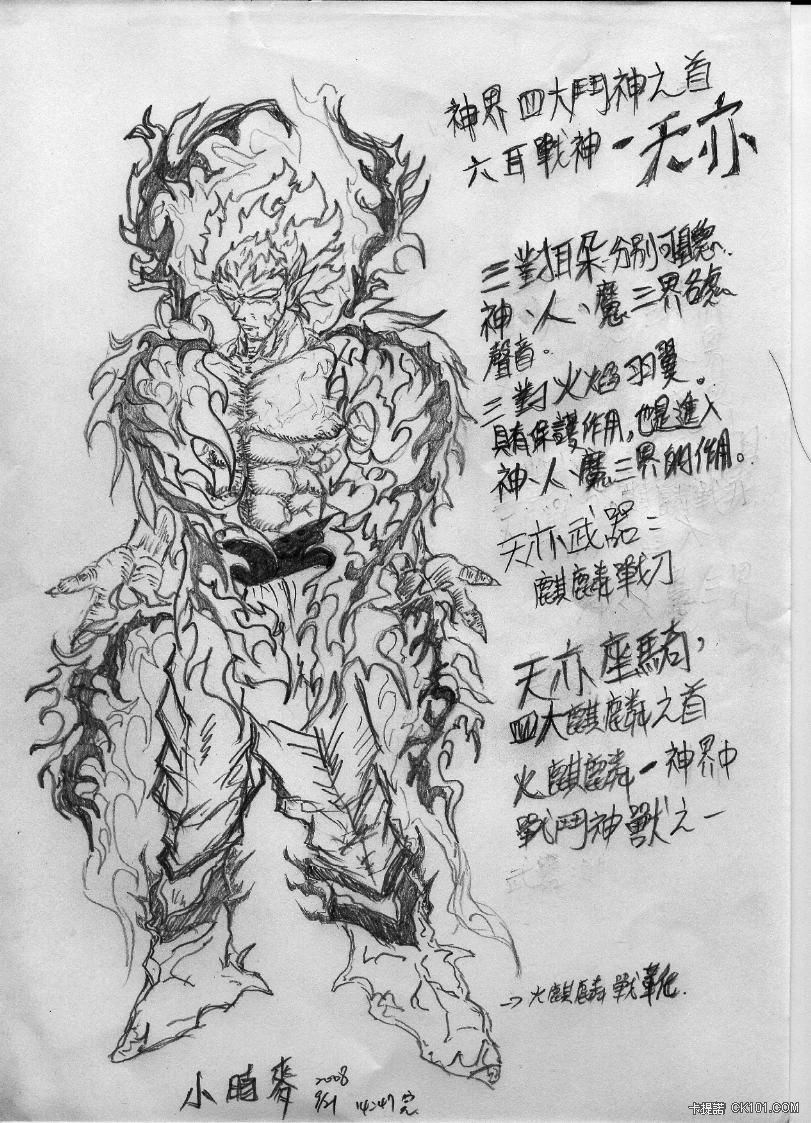 神界四大鬥神之首
六耳戰神-天亦
三對耳朵分別可聽
神、人、魔三界各處
聲音。
三對火焰羽翼。
具有保護作用,也是進入
神、人、魔三界的作用。
天亦武器：
麒麟戰刀
天亦座騎，
四大麒麟之首
火麒麟-神界中
戰鬥神獸之一
→火麒麟戰靴.
小 麥 2008
9/21 14:47 完
卡提諾 CK101.COM